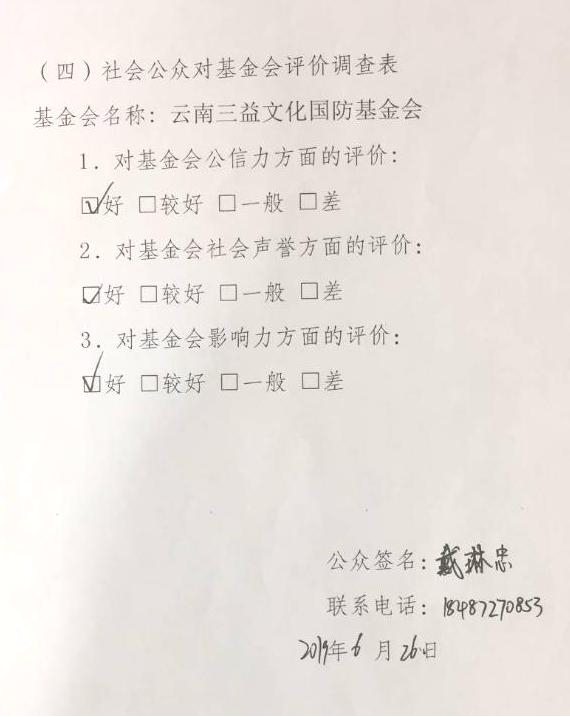 （四）社会公众对基金会评价调查表
基金会名称：云南三益文化国防基金会
1．对基金会公信力方面的评价：
☑好 □较好 □一般 □差
2．对基金会社会声誉方面的评价：
☑好 □较好 □一般 □差
3．对基金会影响力方面的评价：
☑好 □较好 □一般 □差
公众签名：戴琳忠
联系电话：18487270853
2019年6月26日